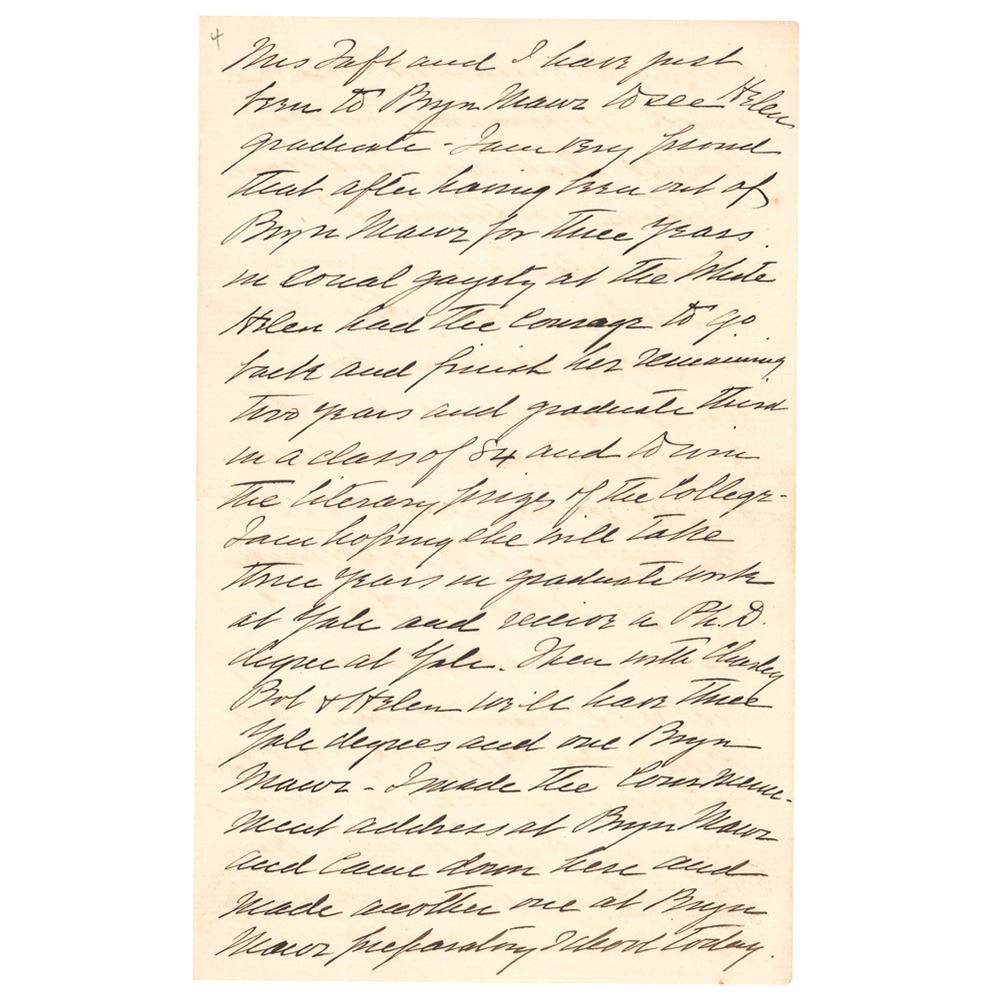 4
Mrs Taft and I have just
been to Bryn Mawr to see Helen
graduate - I am very proud
that after having been out of
Bryn Mawr for three years
in social gayety at the White
Helen had the courage to go
back and finish her remaining
two years and graduate third
in a class of 84 and to win
the literary prizes of the College -
I am hoping she will take
three years in graduate work
at Yale and receive a Ph.D.
degree at Yale. Then with Charley
Bob & Helen we'll have three
Yale degrees and one Bryn
Mawr - I made the Commence-
ment address at Bryn Mawr
and came down here and
made another one at Bryn
Mawr preparatory School today.